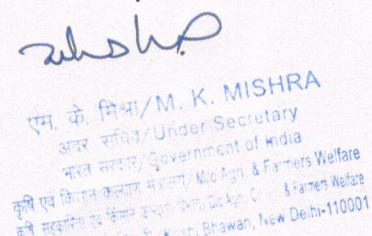 एम. के. मिश्रा/M. K. MISHRA
अवर सचिव/Under Secretary
भारत सरकार/Government of India
कृषि एवं किसान कल्याण मंत्रालय/M/o Agri. & Farmers Welfare
कृषि सहकारिता एवं किसान कल्याण & Farmers Welfare
Bhawan, New Delhi-110001